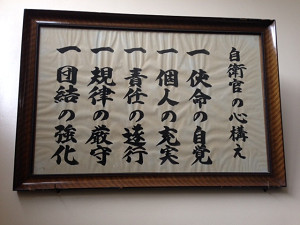 自衛官の心構え
一 使命の自覚
一 個人の充実
一 責任の遂行
一 規律の厳守
一 団結の強化